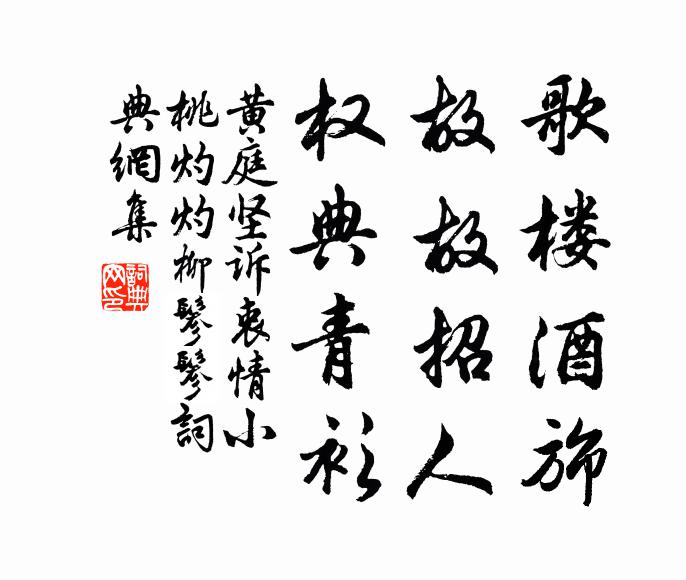 歌楼酒旆
故故招人
权典青衫
黄庭坚诉衷情小
桃灼灼柳鬖鬖词
典網集
詞典網印